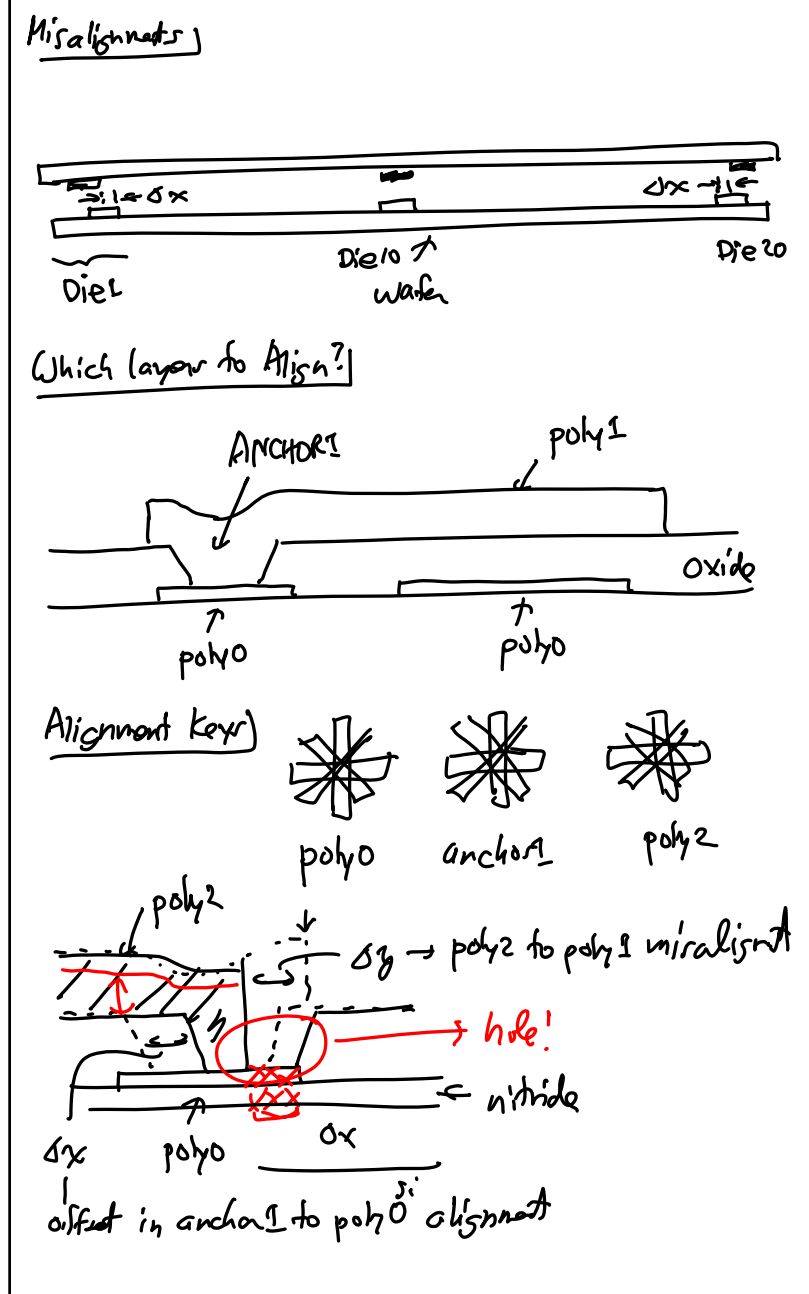 Misalignmets
Δx Δx
Die1 Die10 wafer Die20
Which layers to Align?
ANCHOR1 poly1
oxide
poly0 poly0
Alignment keys
poly0 anchor1 poly2
poly2
Δy → poly2 to poly1 misalignt
hole!
nitride
Δx poly0 ox
si
offset in anchor1 to poly0 alignment